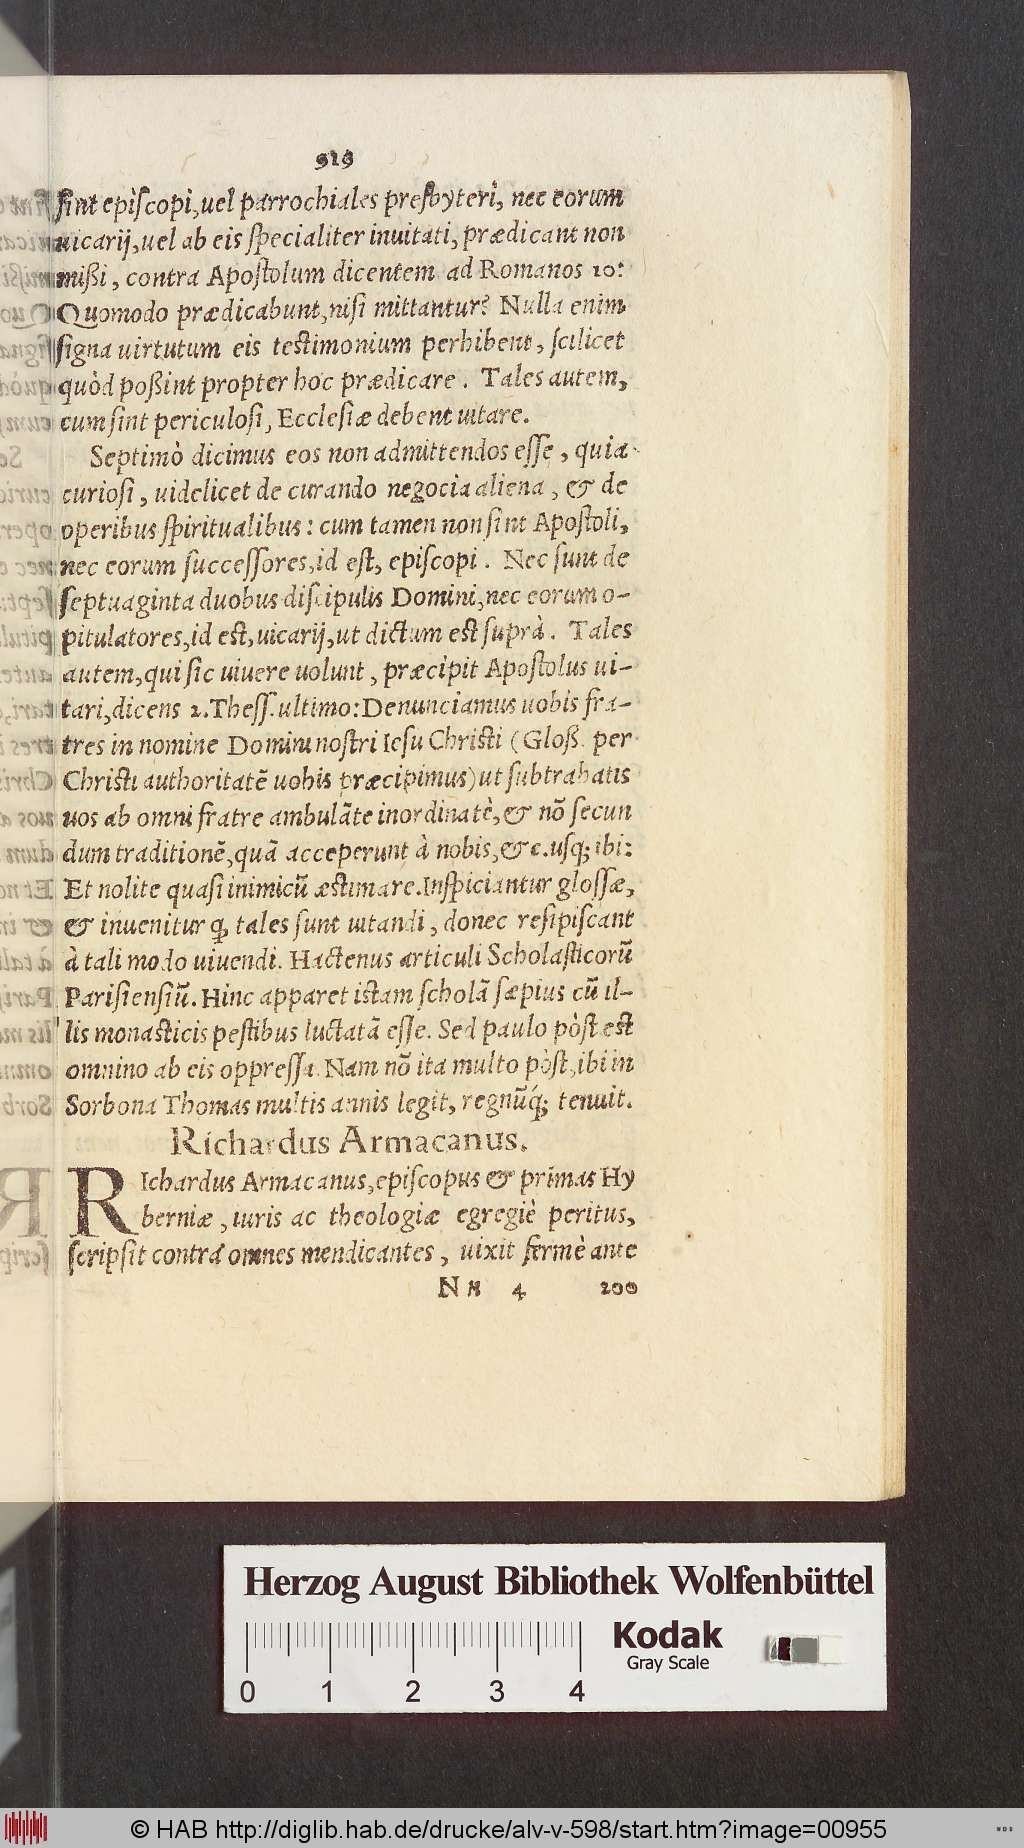 919
ſint epiſcopi, uel parrochiales presbyteri, nec eorum
uicarij, uel ab eis ſpecialiter inuitati, prædicant non
mißi, contra Apoſtolum dicentem ad Romanos 10:
Quomodo prædicabunt, niſi mittantur? Nulla enim
ſigna uirtutum eis teſtimonium perhibent, ſcilicet
quòd poßint propter hoc prædicare. Tales autem,
cum ſint periculoſi, Eccleſiæ debent uitare.
Septimò dicimus eos non admittendos eſſe, quia
curioſi, uidelicet de curando negocia aliena, & de
operibus ſpiritualibus: cum tamen non ſint Apoſtoli,
nec eorum ſucceſſores, id eſt, epiſcopi. Nec ſunt de
ſeptuaginta duobus diſcipulis Domini, nec eorum o-
pitulatores, id eſt, uicarij, ut dictum eſt ſuprà. Tales
autem, qui ſic uiuere uolunt, præcipit Apoſtolus ui-
tari, dicens 2. Theſſ. ultimo: Denunciamus uobis fra-
tres in nomine Domini noſtri Ieſu Chriſti (Gloß. per
Chriſti authoritatē uobis præcipimus) ut ſubtrahatis
uos ab omni fratre ambulāte inordinatè, & nō ſecun
dum traditionē, quā acceperunt à nobis, &c. uſq; ibi:
Et nolite quaſi inimicū æſtimare. Inſpiciantur gloſſæ,
& inuenitur ꝙ tales ſunt uitandi, donec reſipiſcant
à tali modo uiuendi. Hactenus articuli Scholaſticorū
Pariſienſiū. Hinc apparet iſtam ſcholā ſæpius cū il-
lis monaſticis peſtibus luctatā eſſe. Sed paulo pòſt eſt
omnino ab eis oppreſſa. Nam nō ita multo pòſt, ibi in
Sorbona Thomas multis annis legit, regnūq́; tenuit.
Richardus Armacanus.
RIchardus Armacanus, epiſcopus & primas Hy
berniæ, iuris ac theologiæ egregiè peritus,
ſcripſit contra omnes mendicantes, uixit fermè ante
Nn 4 200
Herzog August Bibliothek Wolfenbüttel
Kodak
Gray Scale
0 1 2 3 4
© HAB http://diglib.hab.de/drucke/alv-v-598/start.htm?image=00955